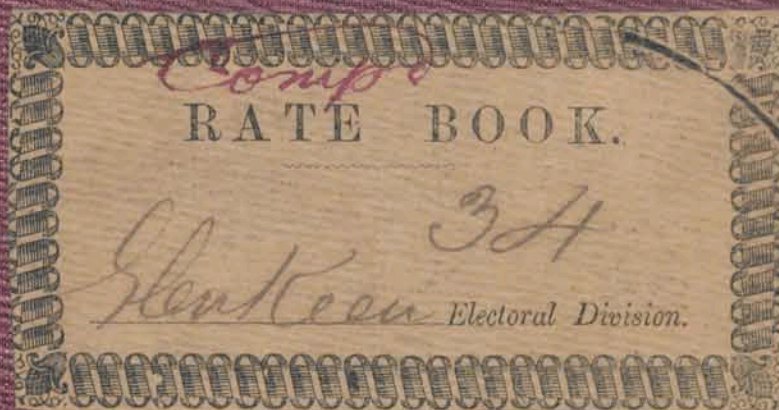 Compd
RATE BOOK.
34
GlenKeen Electoral Division.